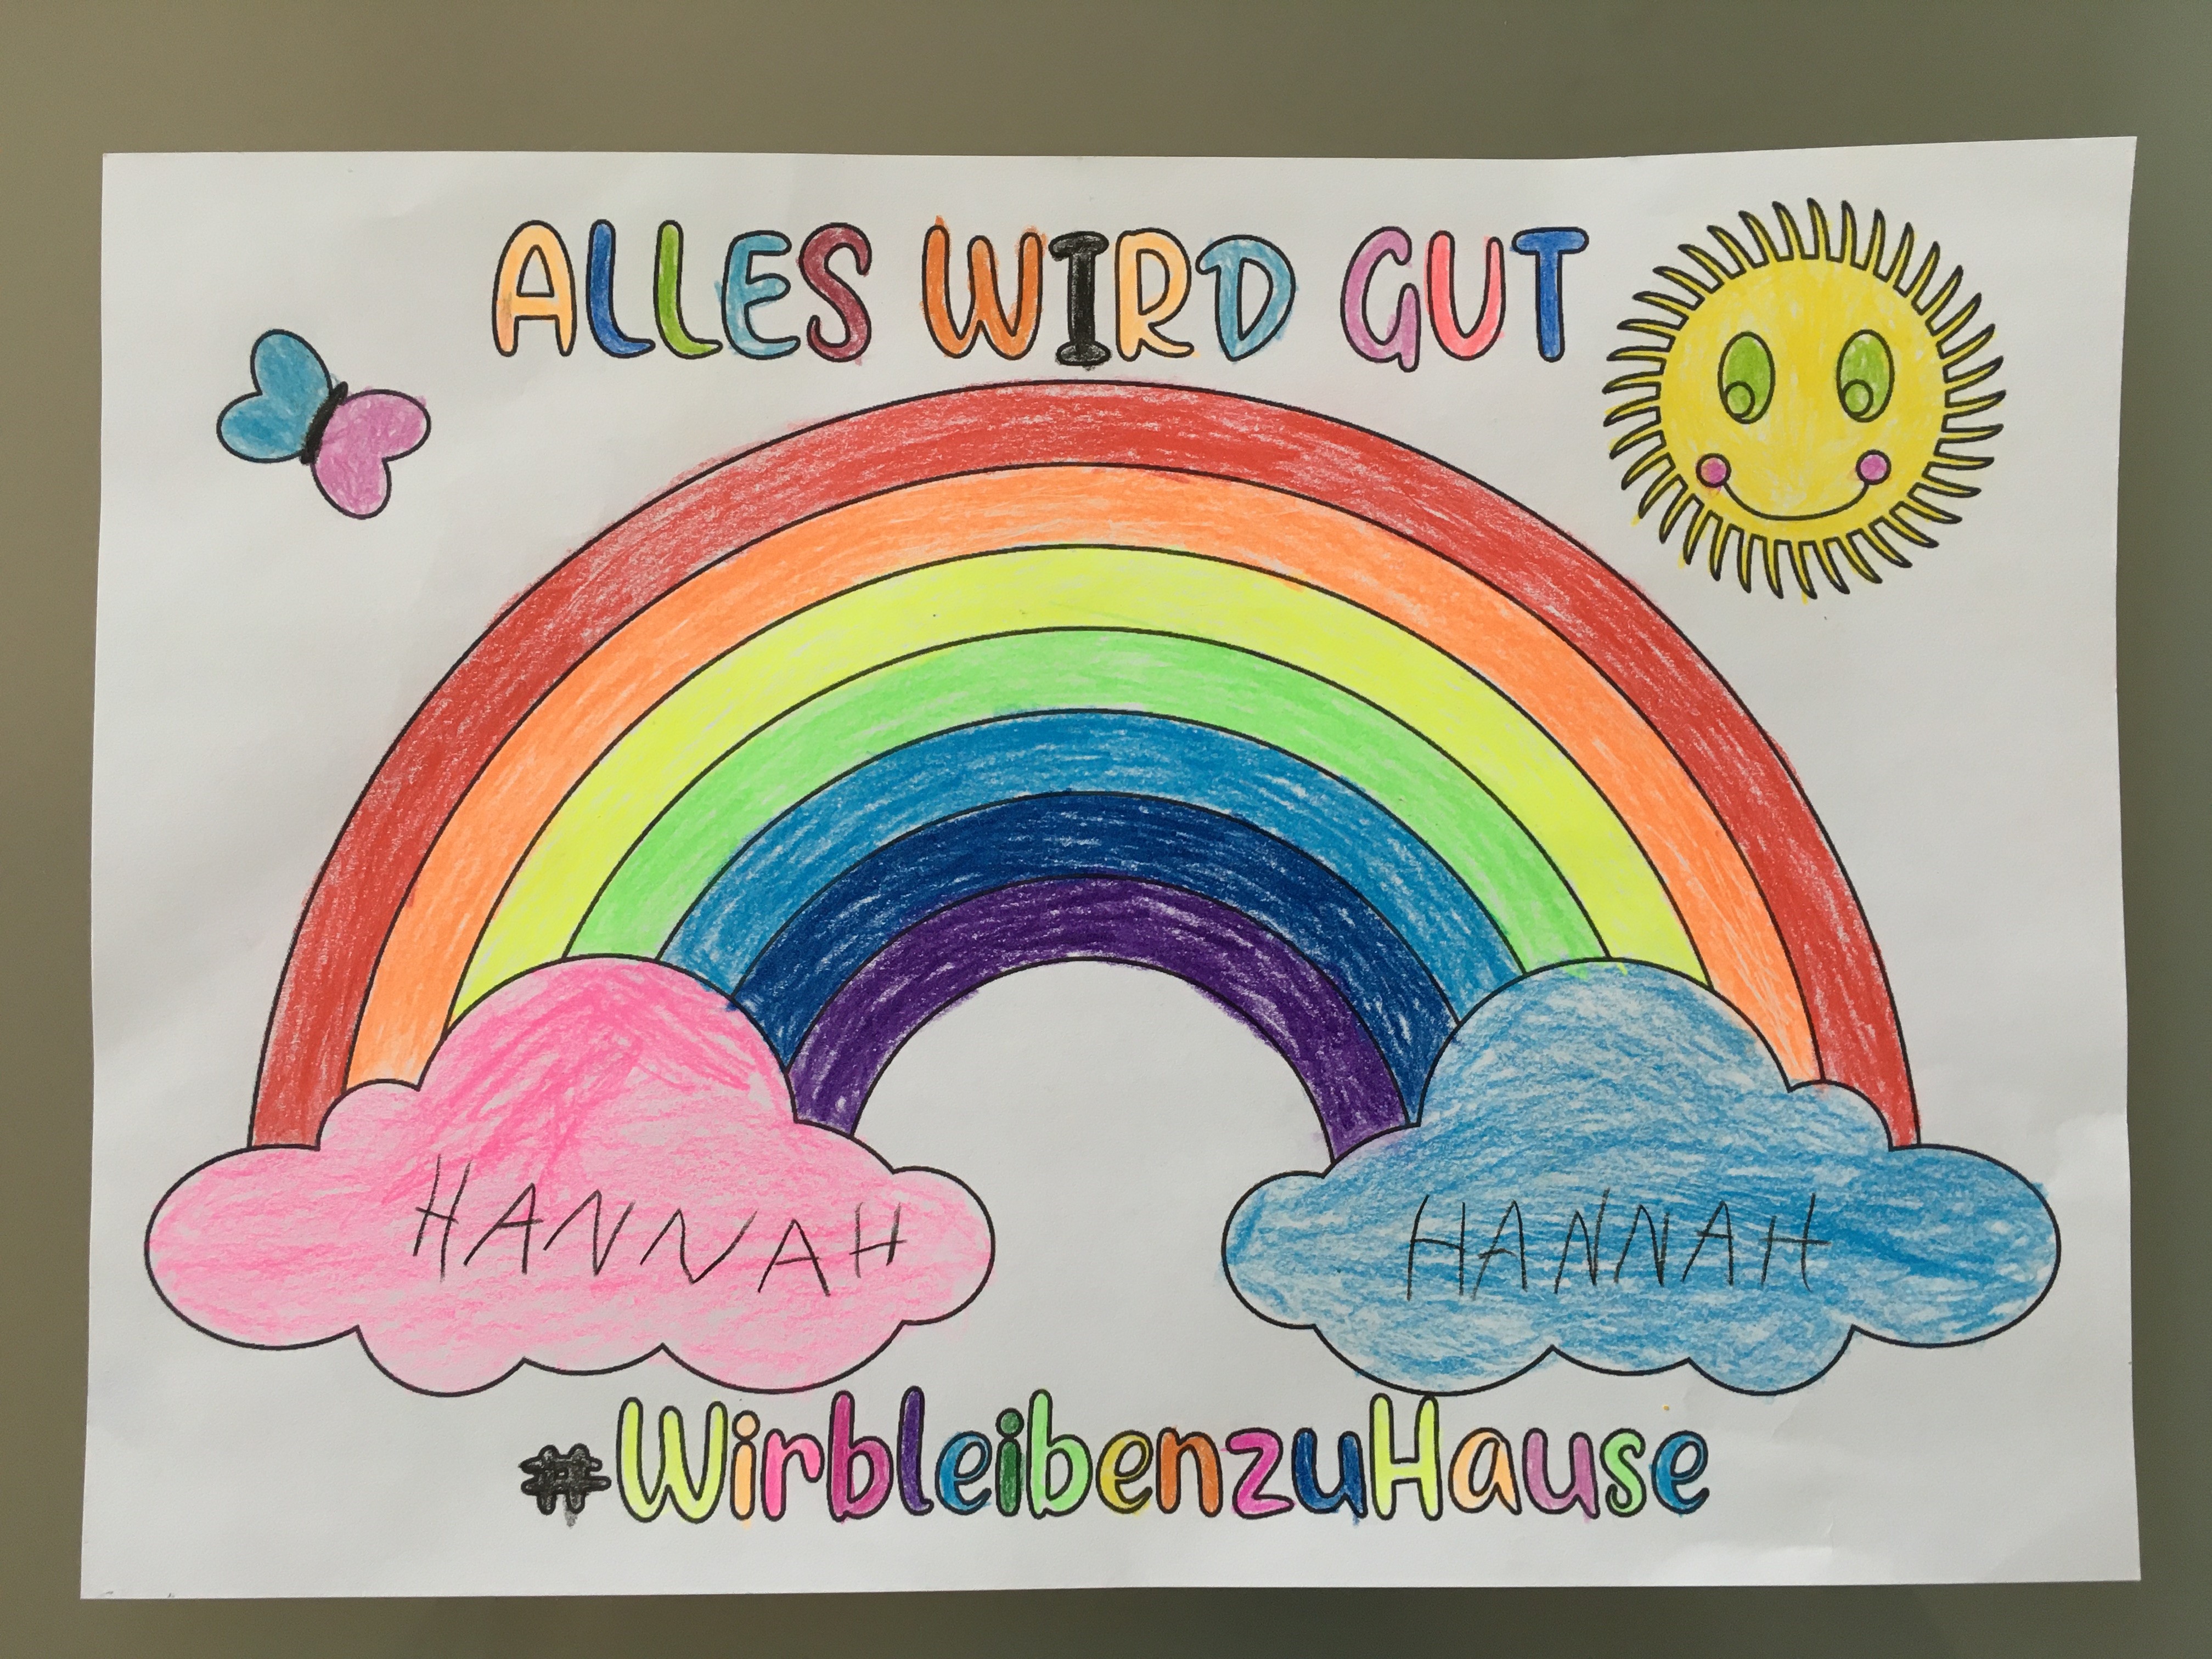 ALLES WIRD GUT
HANNAH HANNAH
#WirbleibenzuHause